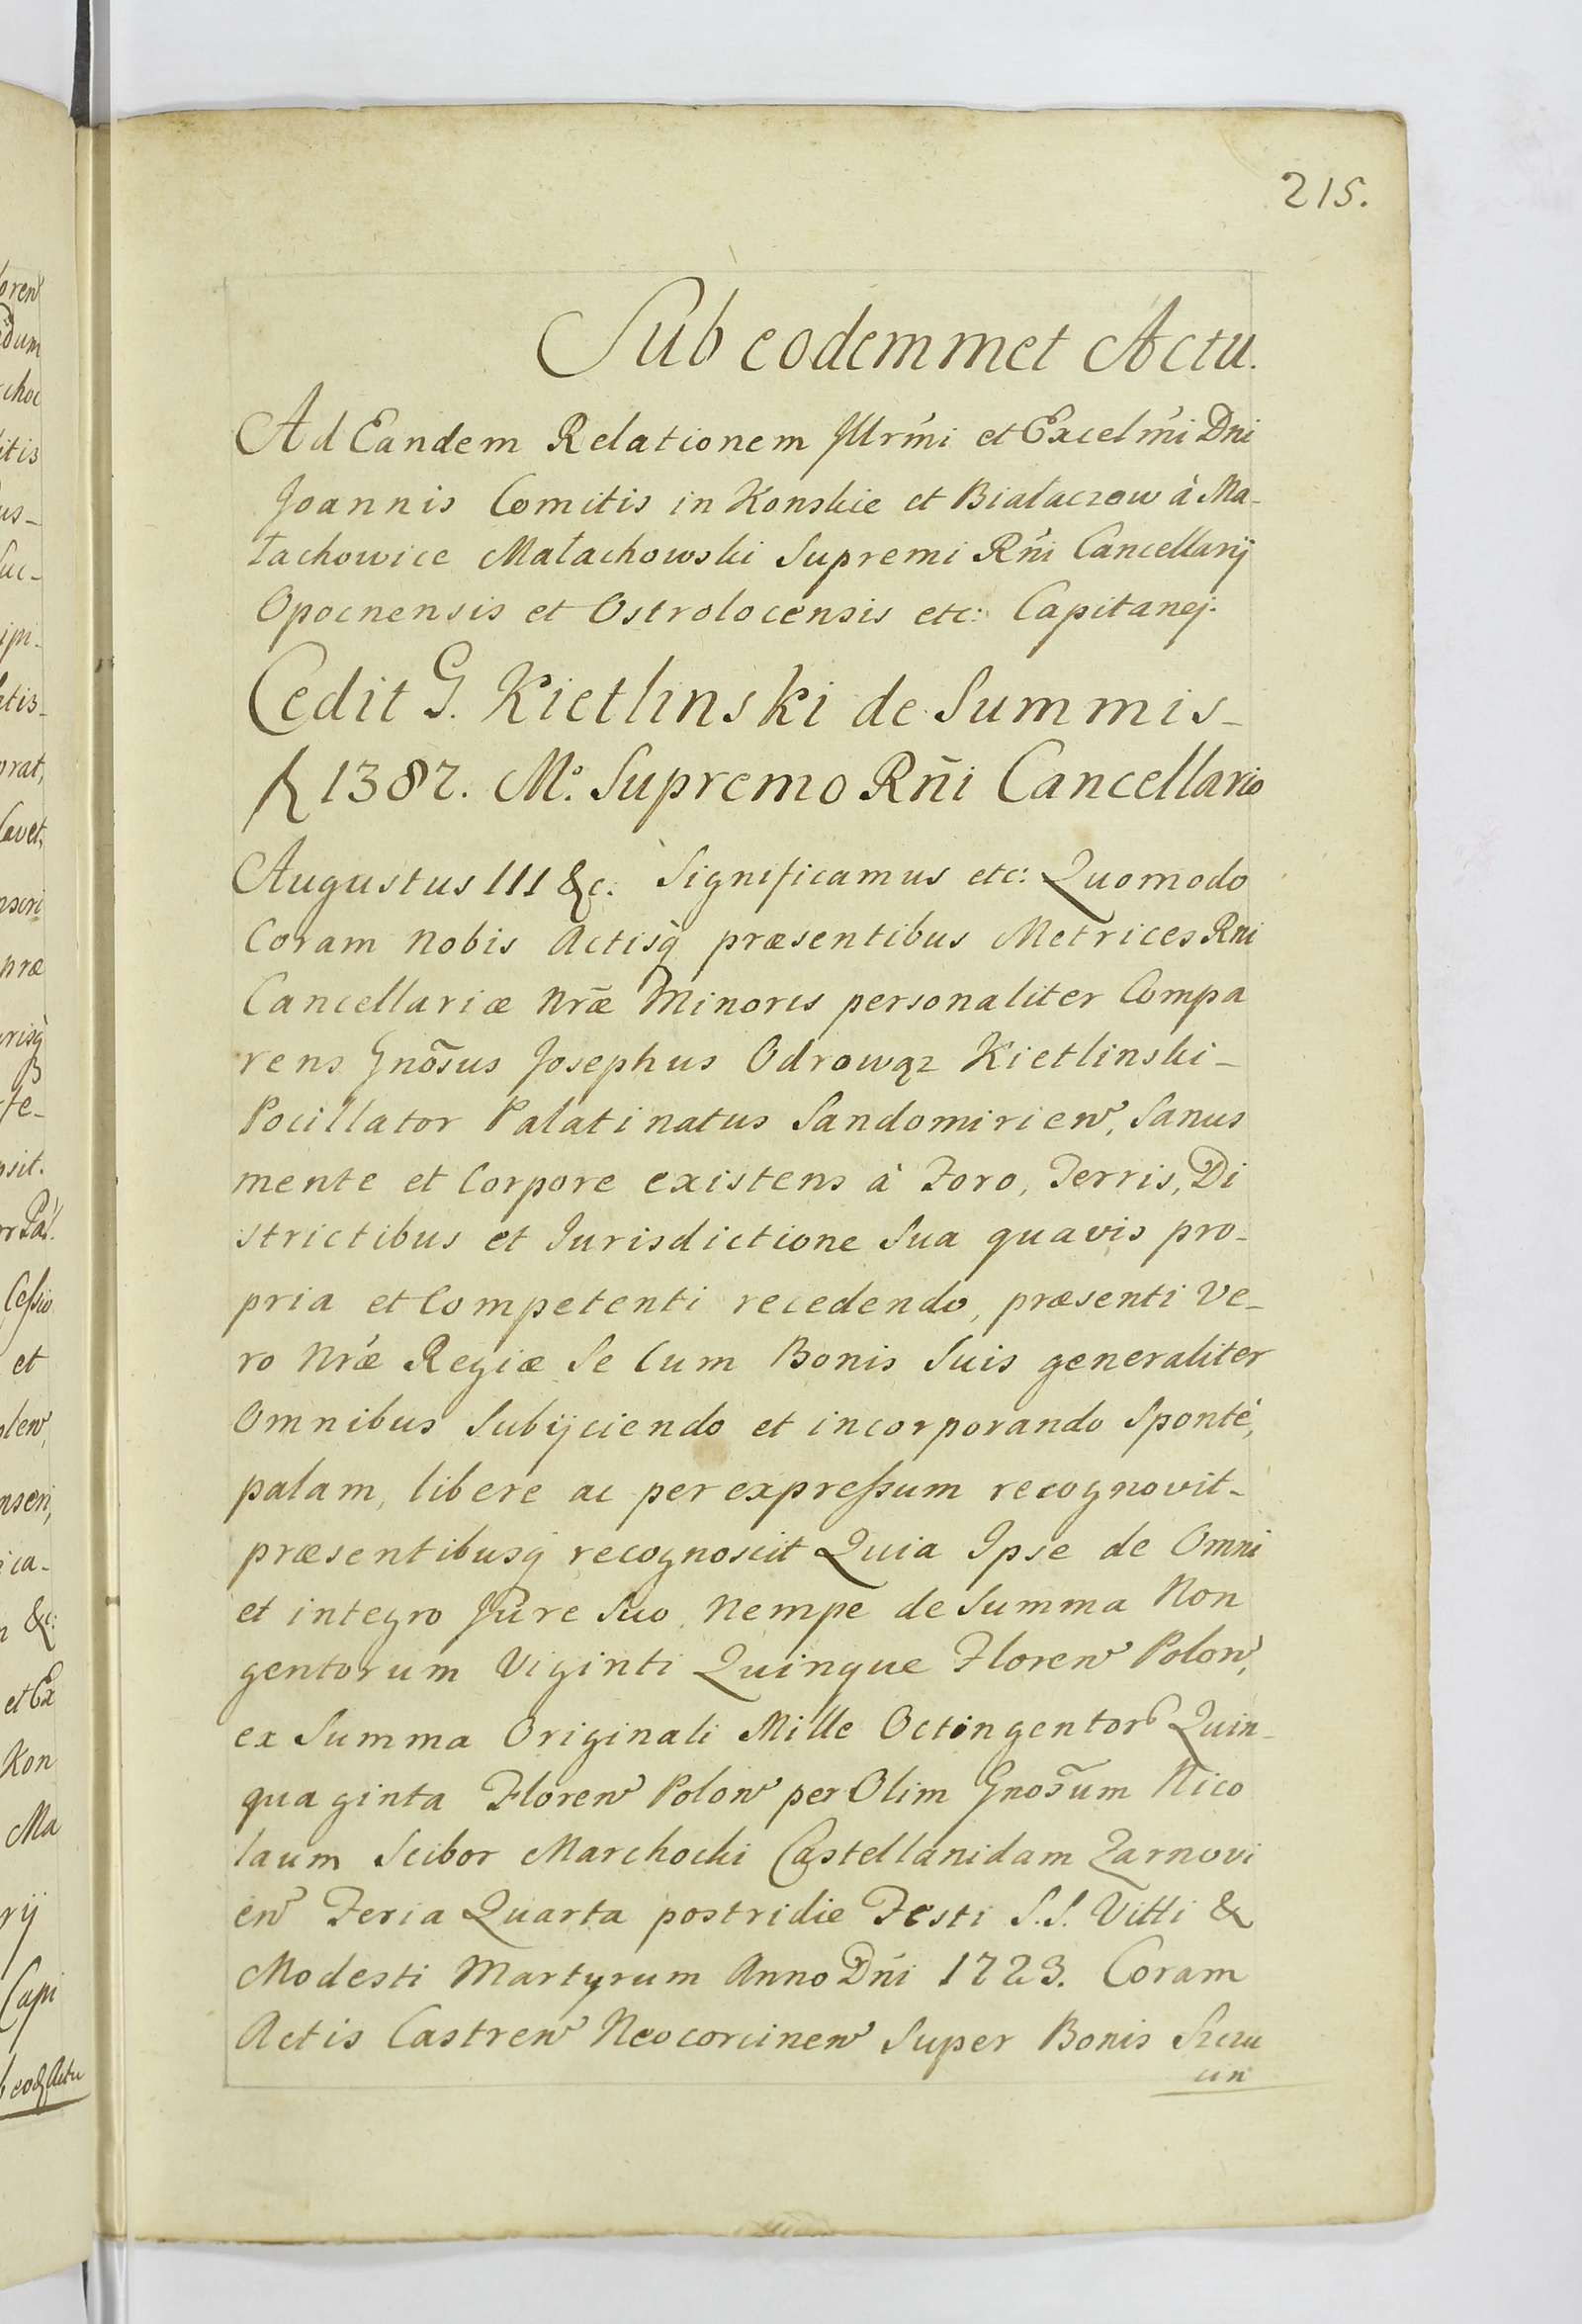 215.
Sub eodemmet Actu.
Ad Eandem Relationem Illrm̃i et Excelm̃i Dni
Joannis Comitis in Konskie et Białaczow à Ma-
łachowice Małachowski Supremi Rñi Cancellarij
Opocnensis et Ostrolocensis etc: Capitanej.
Cedit G. Kietlinski de Summis
fl 1387. M.º Supremo Rñi Cancellario
Augustus III &c. Significamus etc: Quomodo
Coram nobis Actisq̀ præsentibus Metrices Rni
Cancellariæ Nræ̃ Minoris personaliter Compa
rens Gnõsus Josephus Odrowąz Kietlinski
Pocillator Palatinatus Sandomirien, Sanus
mente et Corpore existens à Foro, Terris, Di
strictibus et Jurisdictione Sua quavis pro-
pria et Competenti recedendo, præsenti Ve-
ro Nræ Regiæ Se Cum Bonis Suis generaliter
Omnibus Subijciendo et incorporando Sponté,
palam, libere ac per expressum recognovit
præsentibusq recognoscit Quia Ipse de Omni
et integro Jure Suo, Nempe de Summa Non
gentorum Viginti Quinque Floren Polon,
ex Summa Originali Mille Octingentor Quin-
quaginta Floren Polon per Olim Gnõsum Nico
laum Scibor Marchocki Castellanidam Zarnovi
en Feria Quarta postridie Festi S.S. Vitti &
Modesti Martyrum Anno Dñi 1723. Coram
Actis Castren Neocorcinen Super Bonis Szczu
cin
oren
dum
choc
itis
us-
Suc-
ipi-
tis
rat,
Cavet,
nseri
præ
risq̀
te-
sit.
Cessio
et
len,
nseri,
ica-
&c:
et Ex
Kon
Ma
rij
Capi
eod Actu